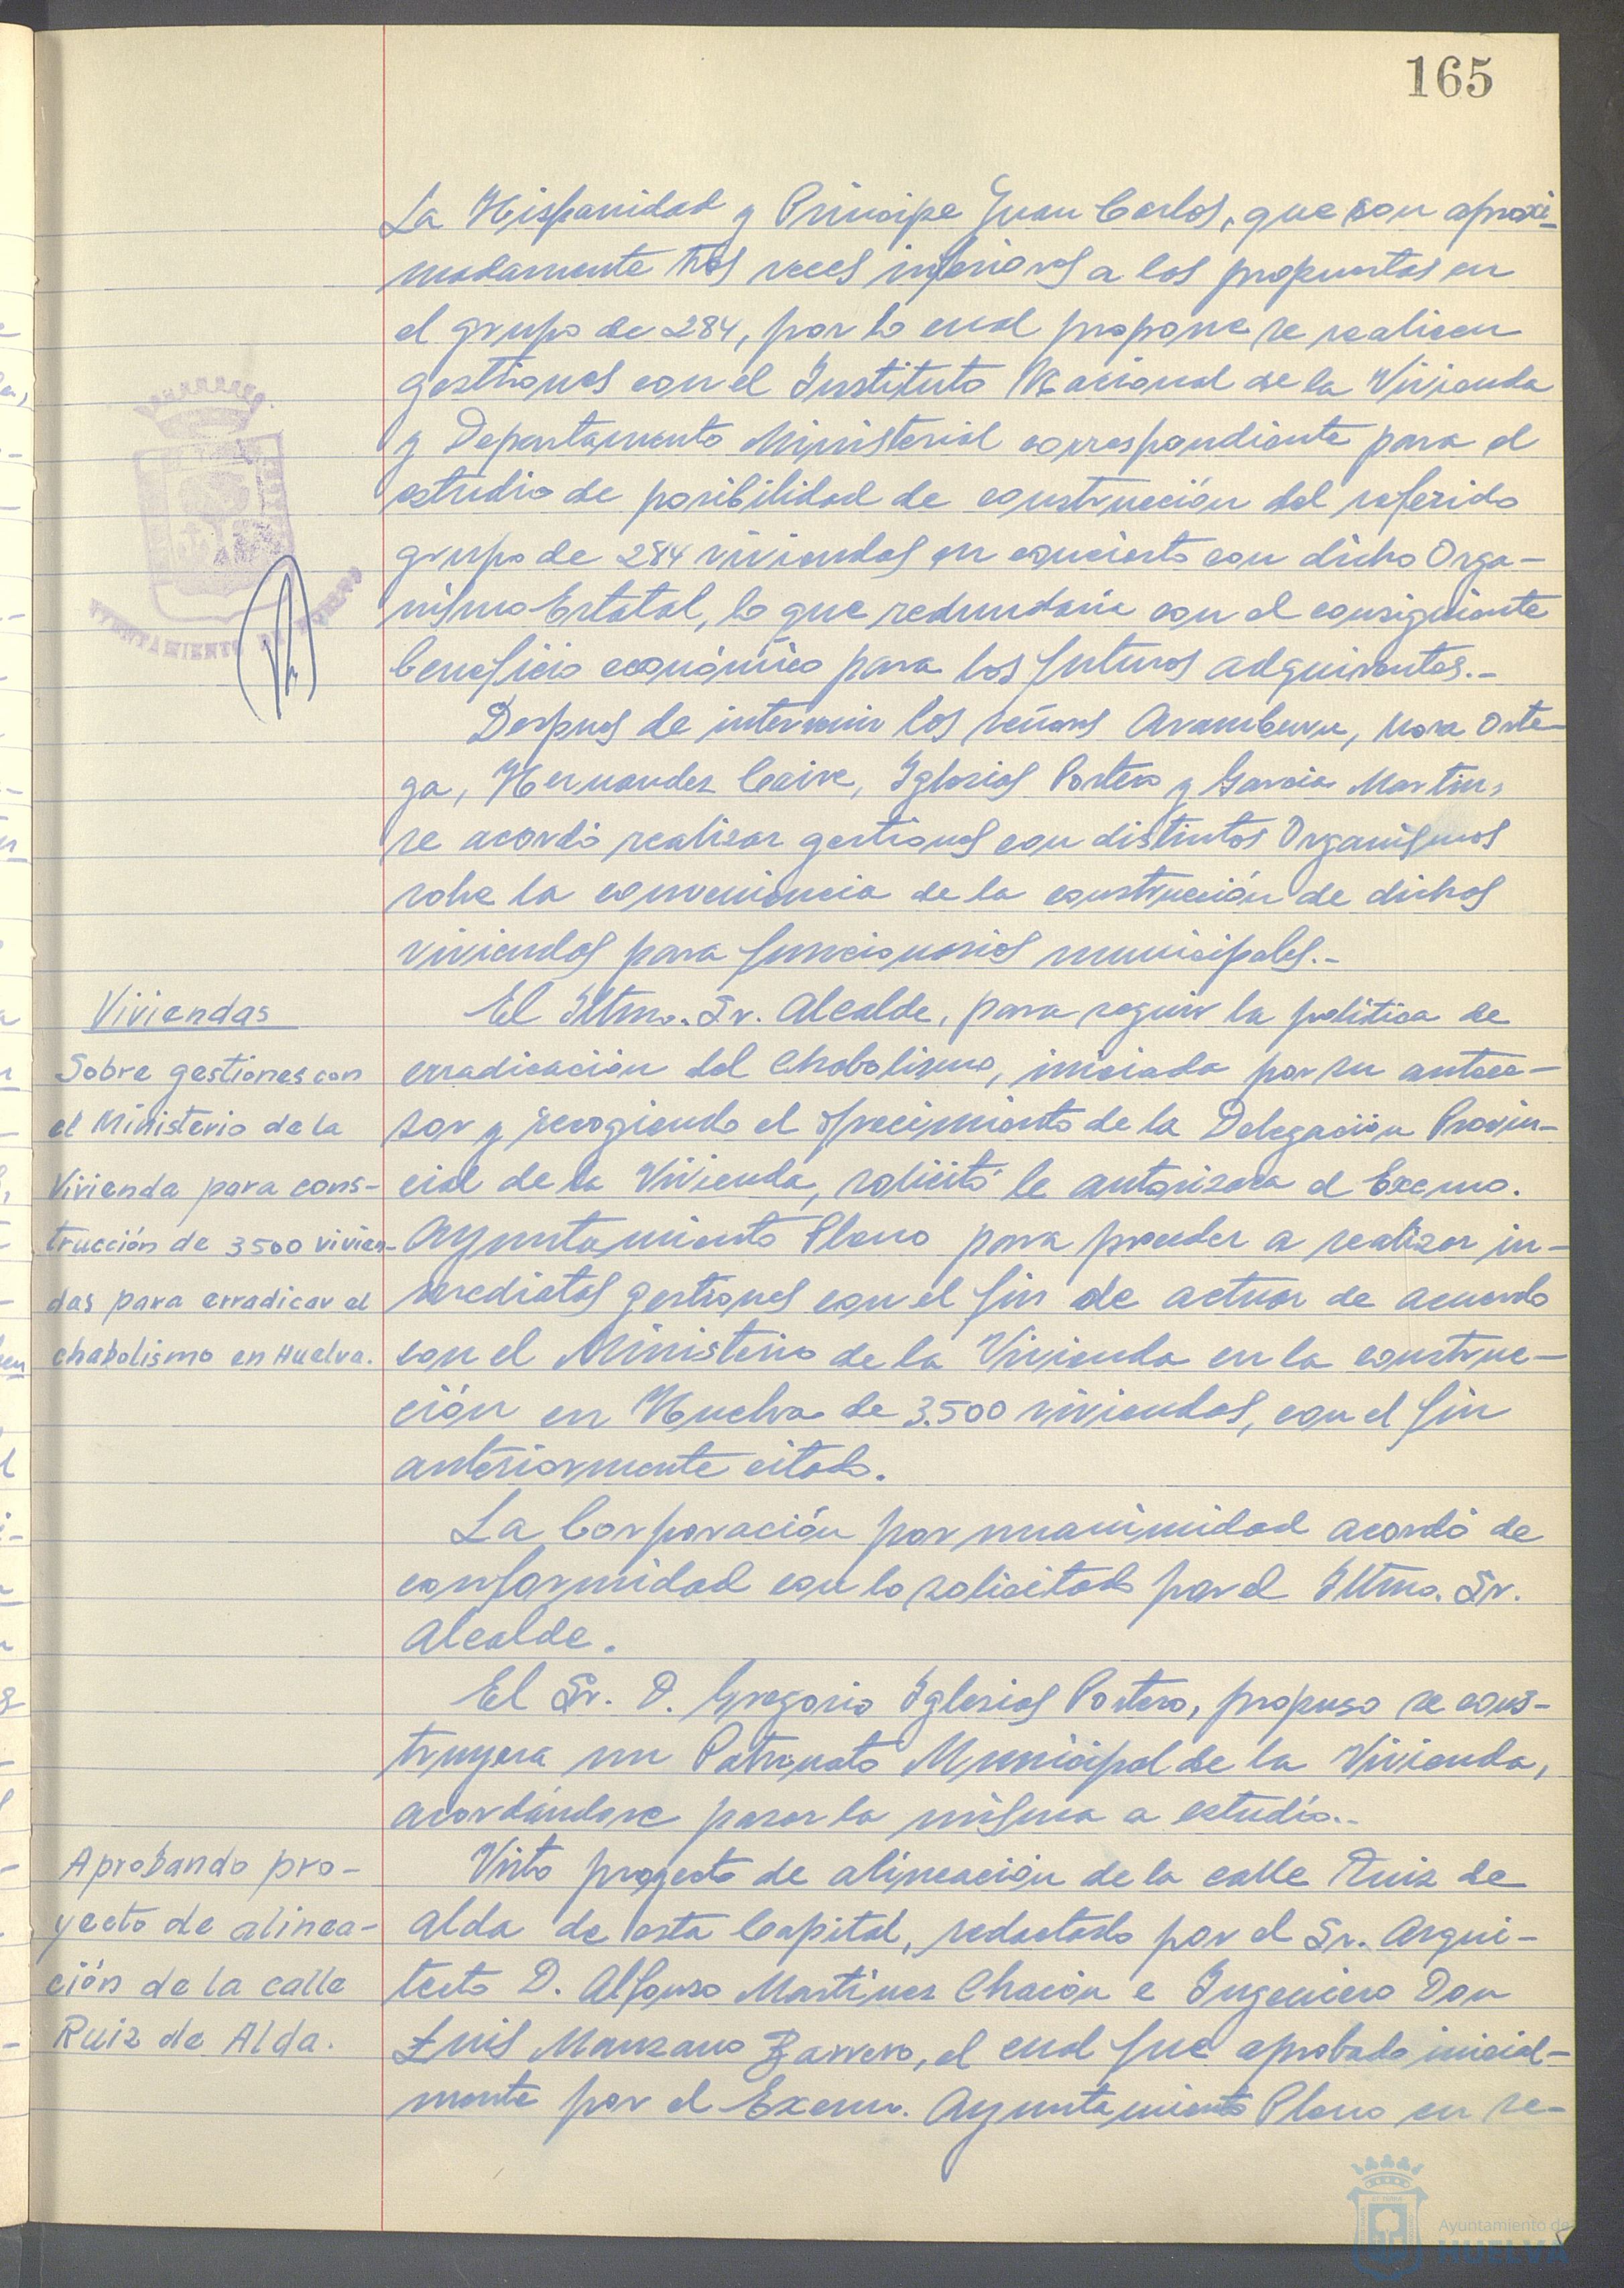 165
La Hispanidad y Principe Juan Carlos, que son aproxi-
madamente tres veces inferiores a los propuestos en
el grupo de 284, por lo cual propone se realicen
gestiones con el Instituto Nacional de la Vivienda
y Departamento Ministerial correspondiente para el
estudio de posibilidad de construcción del referido
grupo de 284 viviendas en concierto con dicho Orga-
nismo Estatal, lo que redundaria con el consiguiente
beneficio económico para los futuros adquirentes.-
AYUNTAMIENTO DE HUELVA
Despues de intervenir los señores Aramburu, Mora Orte-
ga, Hernandez Caire, Iglesias Portero y Garcia Martin,
se acordó realizar gestiones con distintos Organismos
sobre la conveniencia de la construcción de dichas
viviendas para funcionarios municipales.-
Viviendas
Sobre gestiones con
el Ministerio de la
Vivienda para cons-
trucción de 3500 vivien-
das para erradicar el
chabolismo en Huelva.
El Iltmo. Sr. Alcalde, para seguir la politica de
erradicación del Chabolismo, iniciada por su antece-
sor y recogiendo el ofrecimiento de la Delegación Provin-
cial de la Vivienda, solicitó le autorizara el Excmo.
Ayuntamiento Pleno para proceder a realizar in-
mediatas gestiones con el fin de actuar de acuerdo
con el Ministerio de la Vivienda en la construc-
ción en Huelva de 3.500 viviendas, con el fin
anteriormente citado.
La Corporación por unanimidad acordó de
conformidad con lo solicitado por el Iltmo. Sr.
Alcalde.
El Sr. D. Gregorio Iglesias Portero, propuso se cons-
truyera un Patronato Municipal de la Vivienda,
acordándose pasar la misma a estudio.-
Aprobando pro-
yecto de alinea-
ción de la calle
Ruiz de Alda.
Visto proyecto de alineación de la calle Ruiz de
Alda de esta Capital, redactado por el Sr. Arqui-
tecto D. Alfonso Martinez Chacón e Ingeniero Don
Luis Manzano Barrero, el cual fue aprobado inicial-
mente por el Excmo. Ayuntamiento Pleno en se-
Ayuntamiento de
HUELVA